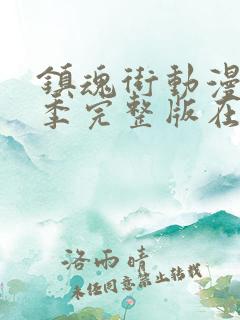 鎮魂街動漫
季完整版在
洛雨晴
未经同意禁止转载